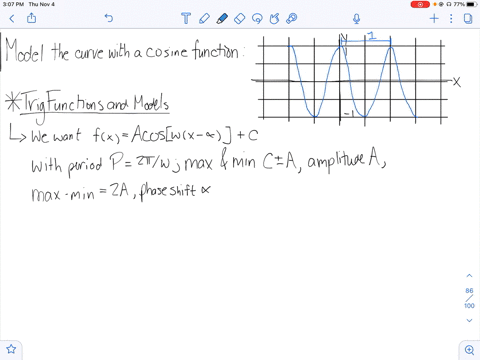 3:07 PM Thu Nov 4
77%
Model the curve with a cosine function:
1
X
-1
*Trig Functions and Models
↳ We want f(x) = A cos[w(x-∝)] + C
with period P = 2π/w; max & min C±A, amplitude A,
max-min = 2A, phase shift ∝
86
/
100